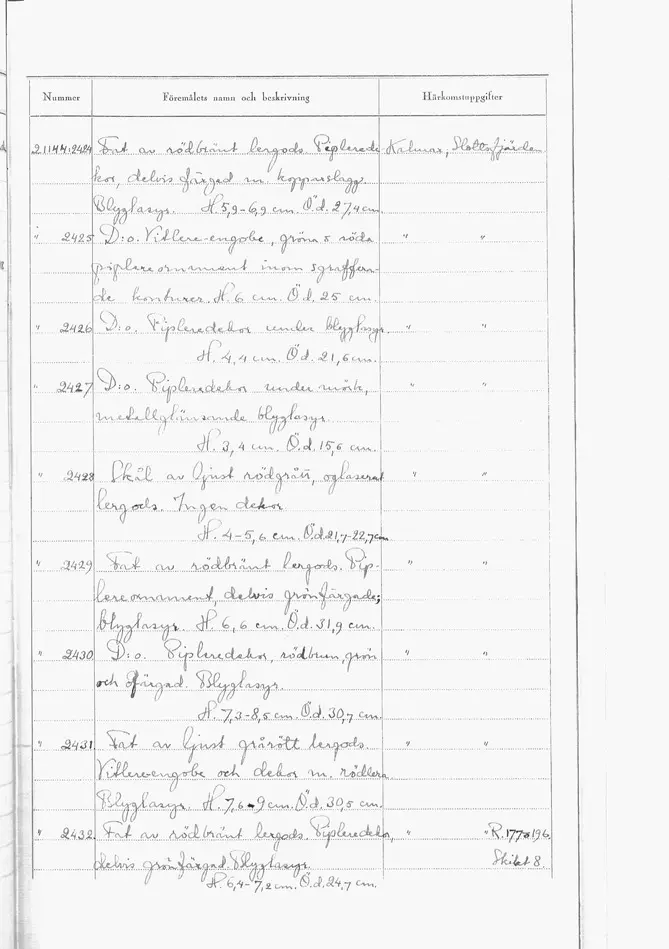 Nummer Föremålets namn och beskrivning Härkomstuppgifter
21144:2424 Fat av rödbränt lergods. Piplerede- Kalmar, Slottsfjärden
kor, delvis färgad m. kopparslagg.
Blyglasyr. H. 5,9-6,9 cm. Ö.d. 27,4 cm.
" 2425 D:o. Vitlere-engobe, gröna & röda " "
piplereornament inom sgraffera-
de konturer. H. 6 cm. Ö.d. 25 cm.
" 2426 D:o. Pipleredekor under blyglasyr. " "
H. 4,4 cm. Ö.d. 21,6 cm.
" 2427 D:o. Pipleredekor under mörk, " "
metallglänsande blyglasyr.
H. 3,4 cm. Ö.d. 15,6 cm.
" 2428 Skål av ljust rödgrått, oglaserat " "
lergods. Ingen dekor
H. 4-5,6 cm. Ö.d. 21,7-22,7 cm
" 2429 Fat av rödbränt lergods. Pip- " "
lereornament, delvis grönfärgade;
blyglasyr. H. 6,6 cm. Ö.d. 31,9 cm.
" 2430 D:o. Pipleredekor, rödbrun, grön " "
och ofärgad. Blyglasyr.
H. 7,3-8,5 cm. Ö.d. 30,7 cm.
" 2431 Fat av ljust grårött lergods. " "
Vitlere-engobe och dekor m. rödlera
Blyglasyr. H. 7,6-9 cm. Ö.d. 30,5 cm.
" 2432 Fat av rödbränt lergods. Pipleredekor, " " R. 177 196.
delvis grönfärgad. Blyglasyr. Skikt 8.
H. 6,4-7,2 cm. Ö.d. 24,7 cm.